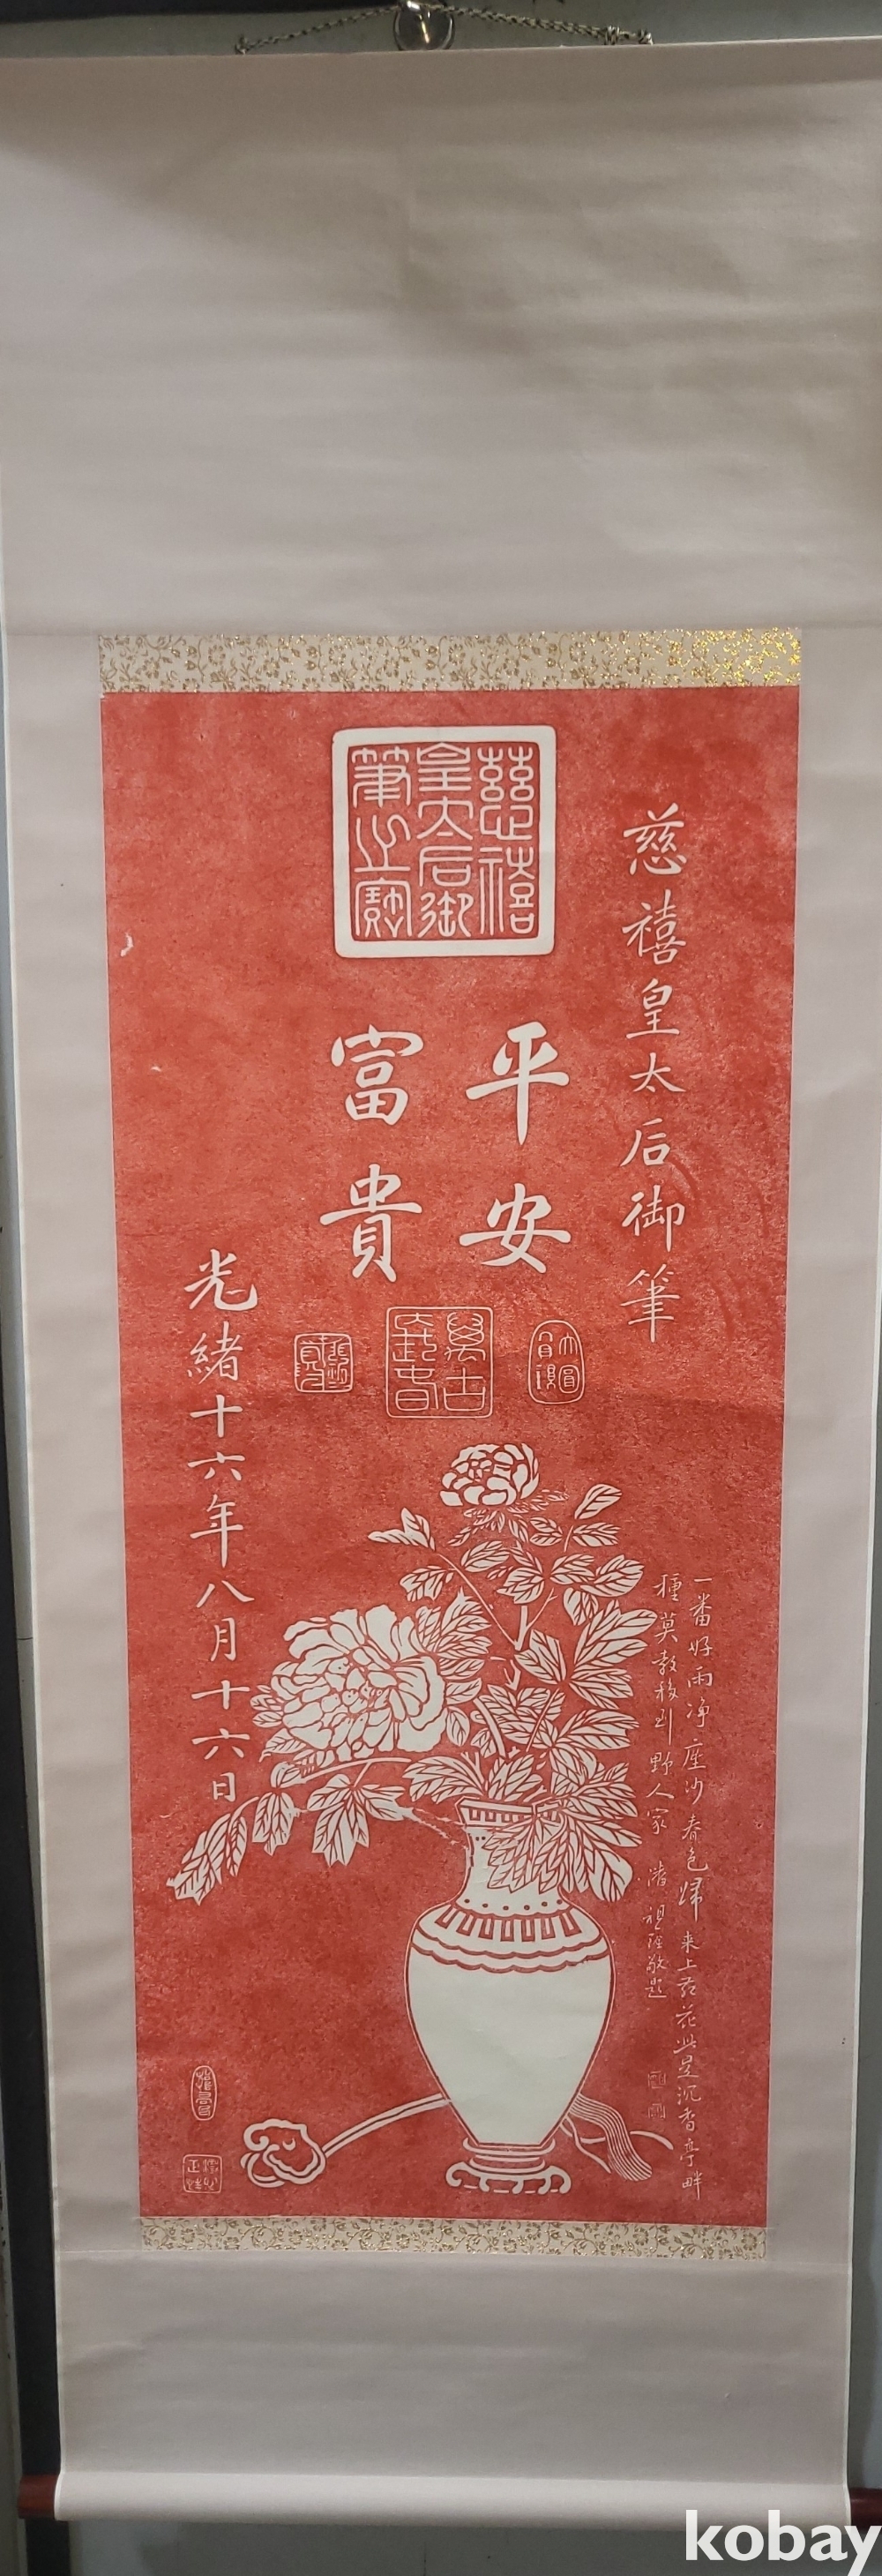 慈禧皇太后御筆之寶
慈禧皇太后御筆
平安
富貴
光緒十六年八月十六日
大圓寶鏡
萬古長春
一番好雨净塵沙春色歸來上苑花此是沉香亭畔
種莫教移到野人家 潘祖蔭敬題
kobay